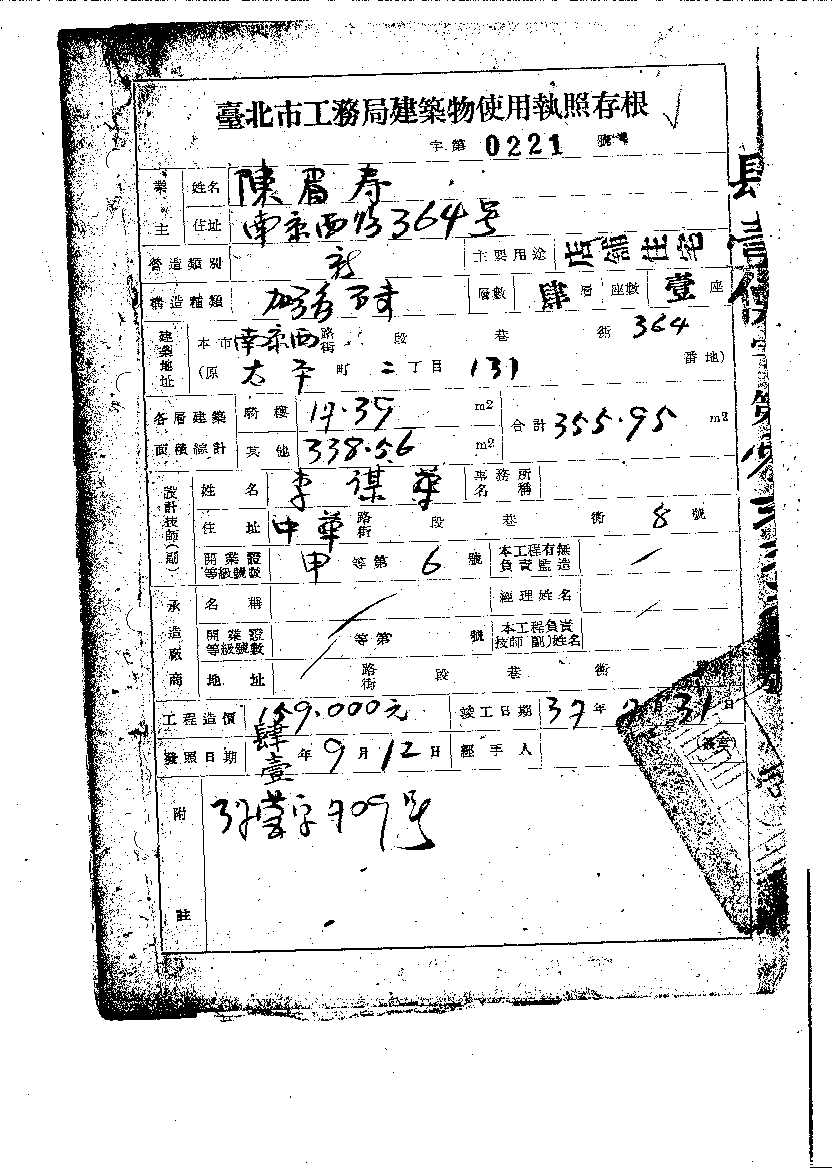 臺北市工務局建築物使用執照存根
字第 0221 號
業主 姓名 陳眉寿
住址 南京西路364号
營造類別 新 主要用途 店舖住宅
構造種類 加强磚造 層數 肆層 座數 壹座
建築地址 本市南京西路街 段 巷 衖 364
(原 太平町 二丁目 131 番地)
各層建築面積綜計 騎樓 17.39 m2 合計 355.95 m2
其他 338.56 m2
設計技師(副) 姓名 李謀華 事務所名稱
住址 中華路街 段 巷 衖 8 號
開業證等級號數 甲 等第 6 號 本工程有無負責監造 /
承造廠商 名稱 經理姓名
開業證等級號數 / 等第 號 本工程負責技師(副)姓名 /
地址 路街 段 巷 衖
工程造價 159.000元 竣工日期 37年 31日
發照日期 肆壹年9月12日 經手人
附註